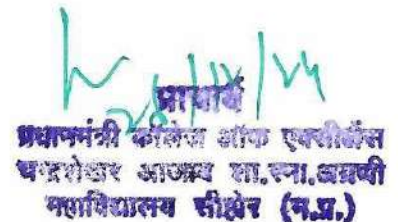 प्राचार्य
प्रधानमंत्री कॉलेज ऑफ एक्सीलेंस
चन्द्रशेखर आजाद शा.स्ना.अग्रणी
महाविद्यालय सीहोर (म.प्र.)